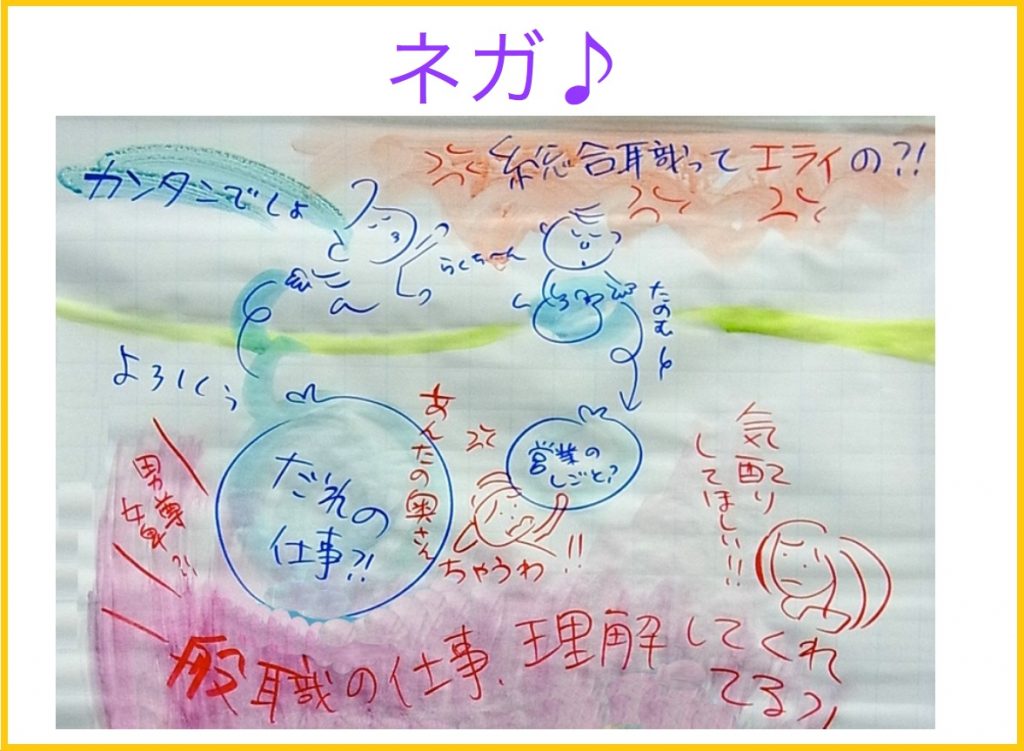 ネガ♪
総合職ってエライの?!
カンタンでしょ
らくちーん
たのむゆ
よろしくぅ
営業の
しごと?
だれの
仕事?!
あんたの奥さん
ちゃうわ!!
気配り
してほしい!!!
男尊
女卑?!
般職の仕事、理解してくれ
てるっ